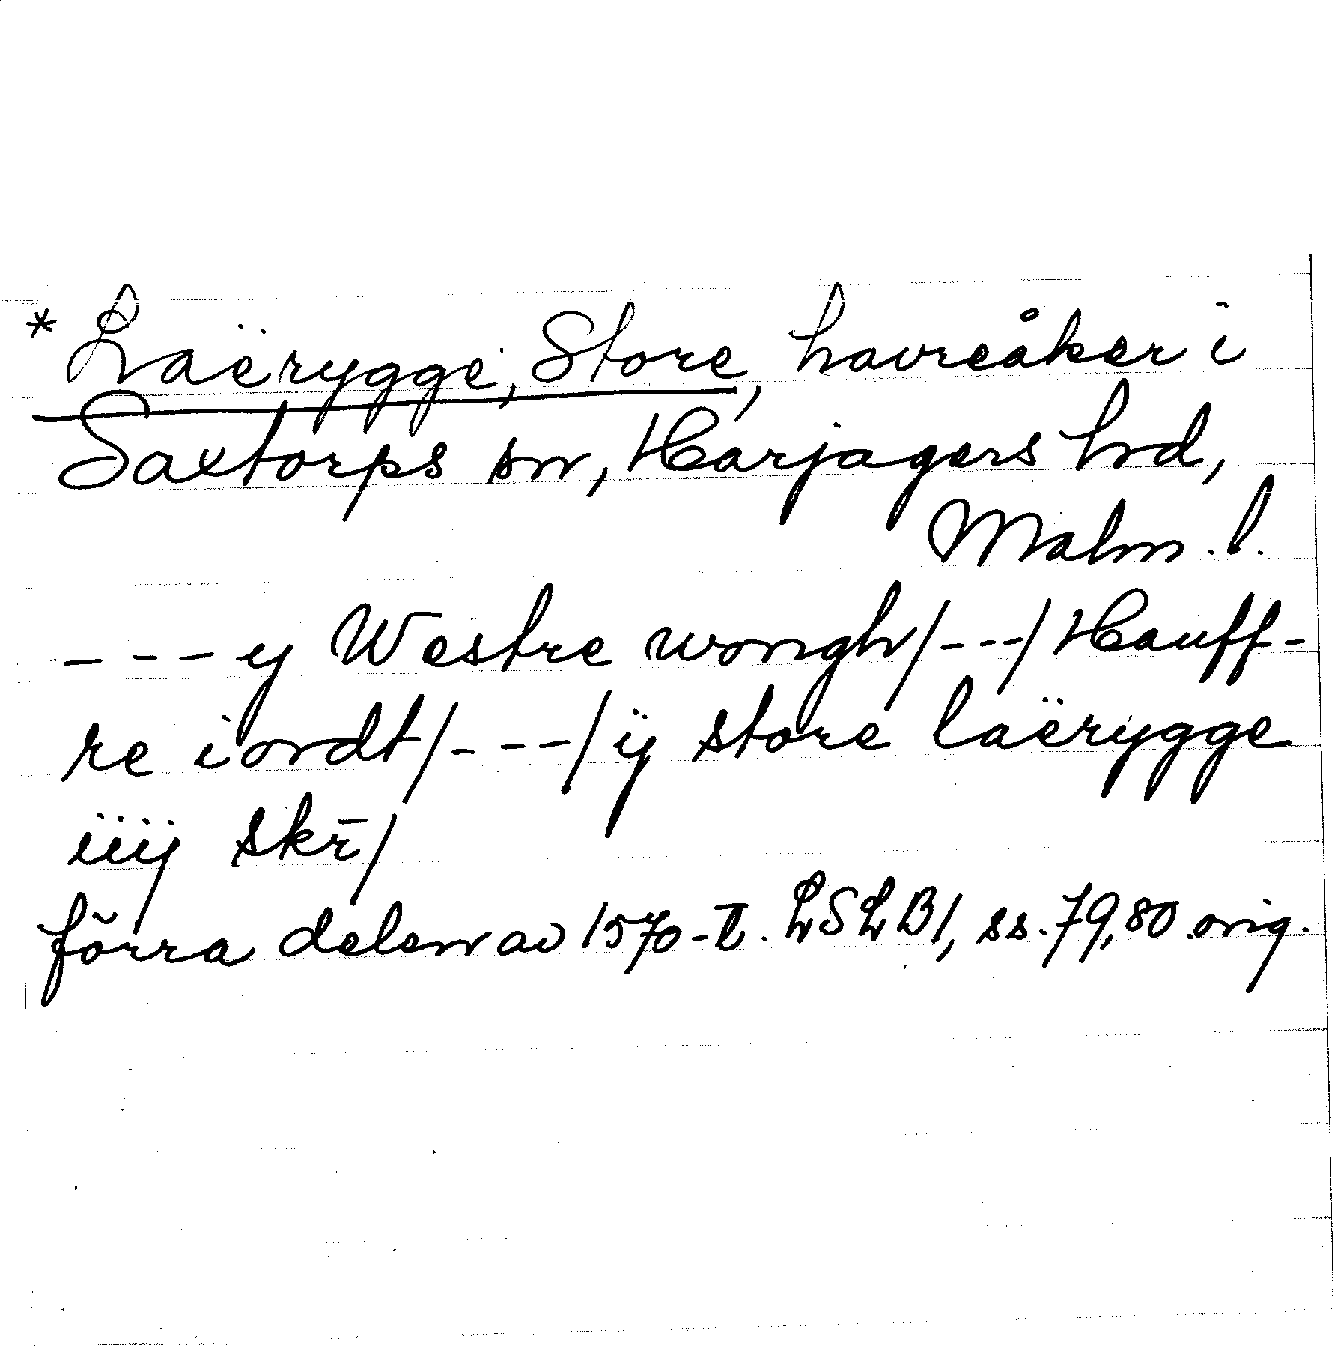 * Laërygge, Store, havreåker i
Saxtorps sn, Harjagers hrd,
Malm. l.
---y Westre wongh/---/Hauff-
re iordt/---/ÿ store laërygge
iiij skr̄/
förra delen av 1570-t. LSLB1, ss. 79,80 orig.